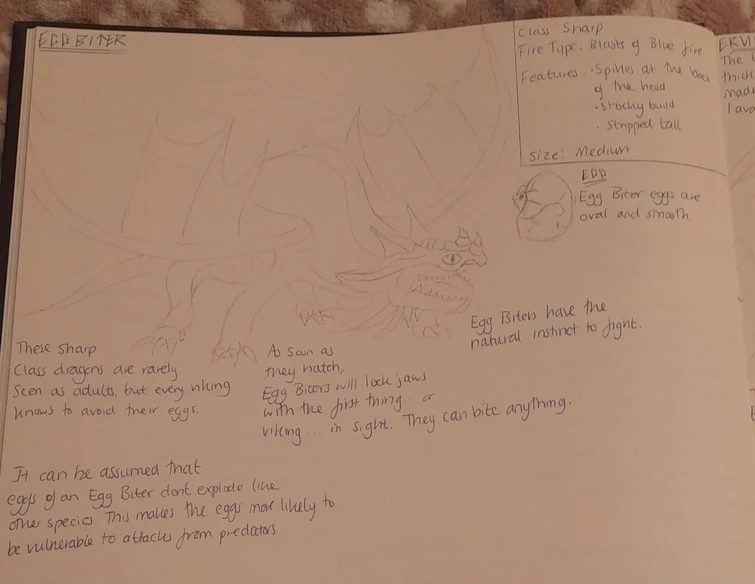 EGG BITER
Class: Sharp
Fire Type: Blasts of Blue fire
Features: · Spikes at the back
of the head
· Stocky build
· Stripped tail
Size: Medium
EGG
Egg Biter eggs are
oval and smooth
Egg Biters have the
natural instinct to fight.
These Sharp
Class dragons are rarely
seen as adults, but every viking
knows to avoid their eggs.
As soon as
they hatch,
Egg Biters will lock jaws
with the first thing... or
viking... in sight. They can bite anything.
It can be assumed that
eggs of an Egg Biter dont explode like
other species. This makes the eggs more likely to
be vulnerable to attacks from predators
The
thick
made
lava